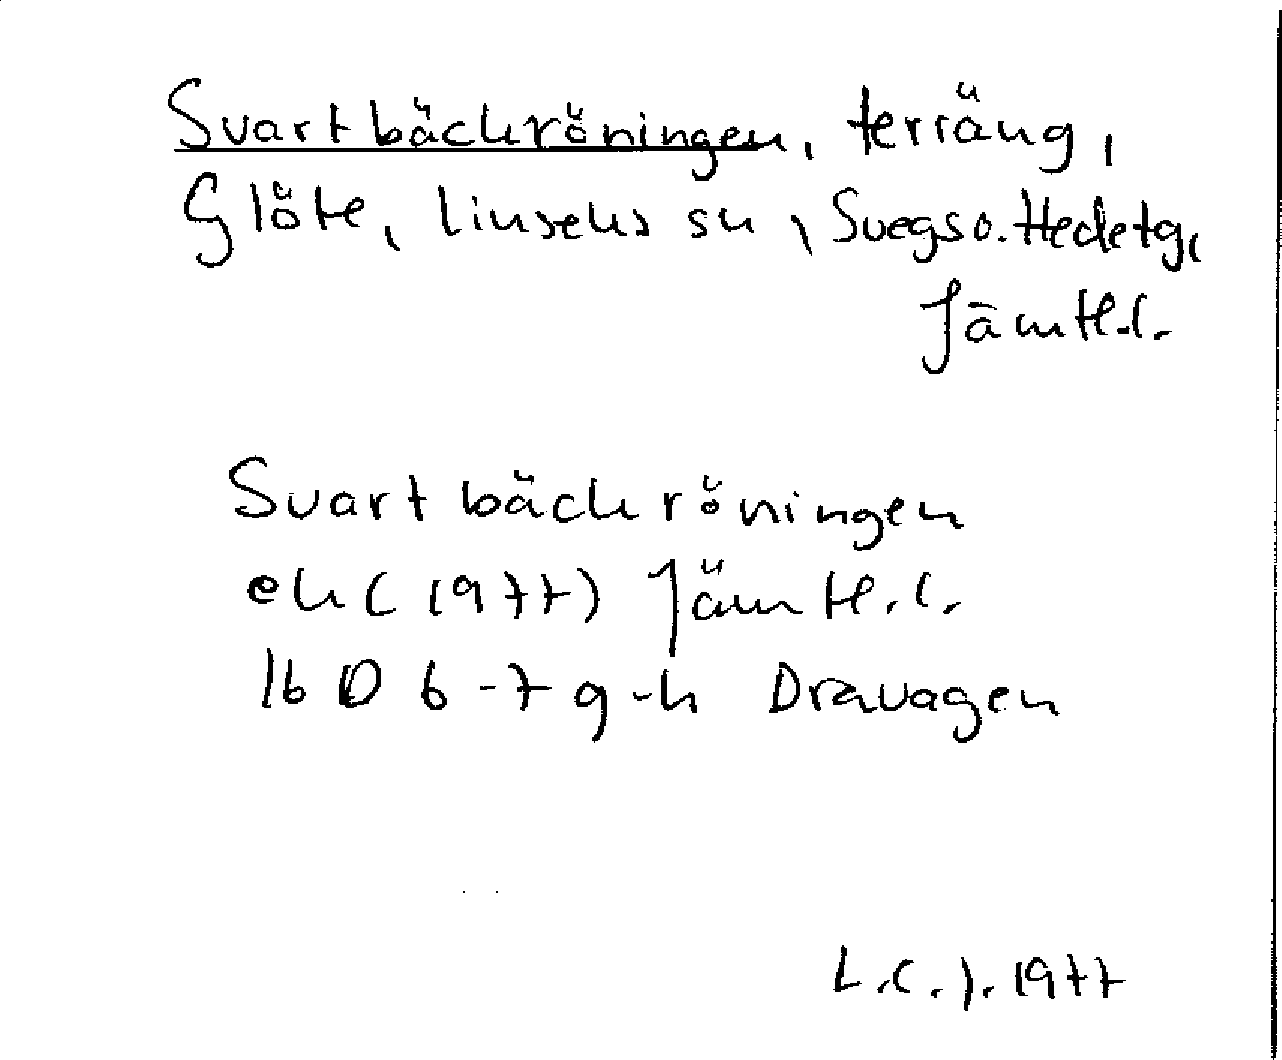 Svartbäckröningen, terräng,
Glöte, Linsells sn, Svegs o. Hedetg,
Jämtl.l.
Svartbäckröningen
ek (1977) Jämtl.l.
16 D 6-7 g-h Dravagen
L.C.J. 1977